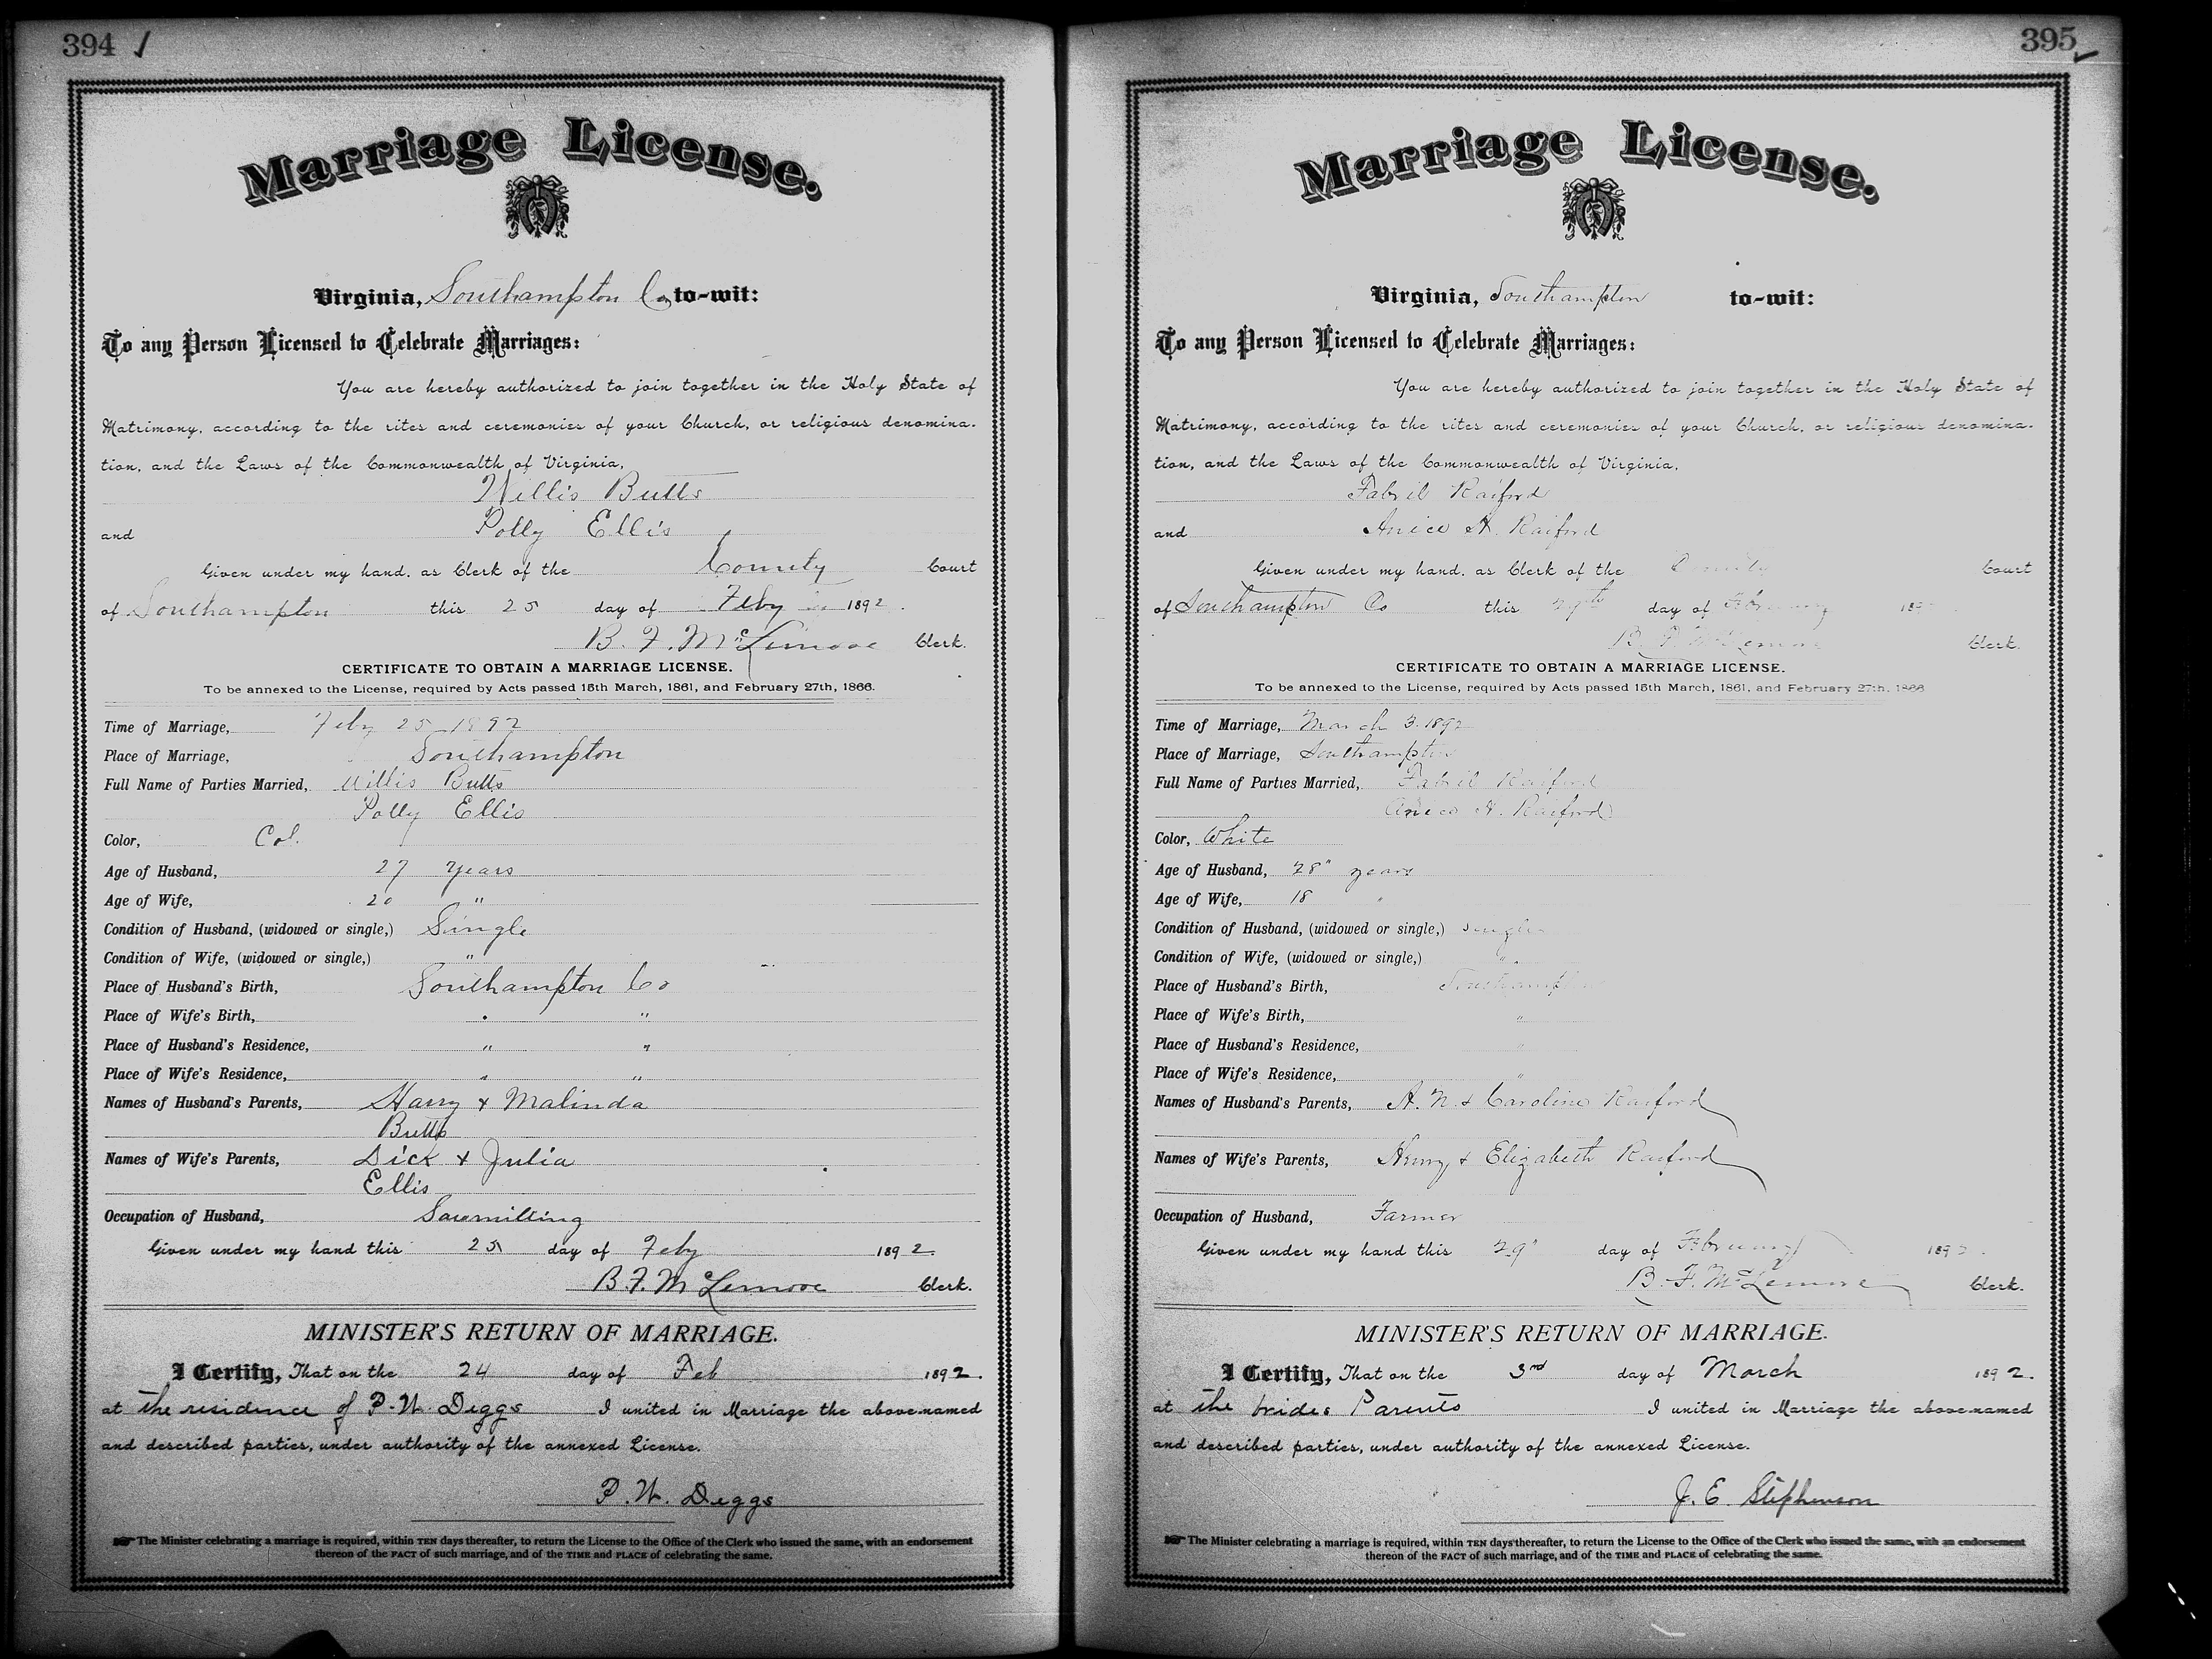 394
Marriage License.
Virginia, Southampton Co, to-wit:
To any Person Licensed to Celebrate Marriages:
You are hereby authorized to join together in the Holy State of
Matrimony, according to the rites and ceremonies of your Church, or religious denomina-
tion, and the Laws of the Commonwealth of Virginia,
Willis Butts
and Polly Ellis
Given under my hand, as Clerk of the County Court
of Southampton this 25 day of Feby 1892.
B. F. McLemore Clerk.
CERTIFICATE TO OBTAIN A MARRIAGE LICENSE.
To be annexed to the License, required by Acts passed 15th March, 1861, and February 27th, 1866.
Time of Marriage, Feby 25 1892
Place of Marriage, Southampton
Full Name of Parties Married, Willis Butts
Polly Ellis
Color, Col.
Age of Husband, 27 years
Age of Wife, 20 "
Condition of Husband, (widowed or single,) Single
Condition of Wife, (widowed or single,) "
Place of Husband's Birth, Southampton Co
Place of Wife's Birth, " "
Place of Husband's Residence, " "
Place of Wife's Residence, " "
Names of Husband's Parents, Harry & Malinda
Butts
Names of Wife's Parents, Dick & Julia
Ellis
Occupation of Husband, Sawmilling
Given under my hand this 25 day of Feby 1892.
B. F. McLemore Clerk.
MINISTER'S RETURN OF MARRIAGE.
I Certify, That on the 24 day of Feb 1892.
at the residence of P. W. Deggs I united in Marriage the above-named
and described parties, under authority of the annexed License.
P. W. Deggs
The Minister celebrating a marriage is required, within TEN days thereafter, to return the License to the Office of the Clerk who issued the same, with an endorsement
thereon of the FACT of such marriage, and of the TIME and PLACE of celebrating the same.
395
Marriage License.
Virginia, Southampton to-wit:
To any Person Licensed to Celebrate Marriages:
You are hereby authorized to join together in the Holy State of
Matrimony, according to the rites and ceremonies of your Church, or religious denomina-
tion, and the Laws of the Commonwealth of Virginia,
Fabril Raiford
and Anice H. Raiford
Given under my hand, as Clerk of the County Court
of Southampton Co this 29th day of February 189
B. F. McLemore Clerk.
CERTIFICATE TO OBTAIN A MARRIAGE LICENSE.
To be annexed to the License, required by Acts passed 15th March, 1861, and February 27th, 1866
Time of Marriage, March 3. 1892
Place of Marriage, Southampton
Full Name of Parties Married, Fabril Raiford
Anice H. Raiford
Color, White
Age of Husband, 28" years
Age of Wife, 18 "
Condition of Husband, (widowed or single,) single
Condition of Wife, (widowed or single,) "
Place of Husband's Birth, Southampton
Place of Wife's Birth, "
Place of Husband's Residence, "
Place of Wife's Residence, "
Names of Husband's Parents, A. N. & Caroline Raiford
Names of Wife's Parents, Henry & Elizabeth Raiford
Occupation of Husband, Farmer
Given under my hand this 29" day of February 1892.
B. F. McLemore Clerk.
MINISTER'S RETURN OF MARRIAGE.
I Certify, That on the 3rd day of March 1892.
at the brides Parents I united in Marriage the above-named
and described parties, under authority of the annexed License.
J. E. Stephenson
The Minister celebrating a marriage is required, within TEN days thereafter, to return the License to the Office of the Clerk who issued the same, with an endorsement
thereon of the FACT of such marriage, and of the TIME and PLACE of celebrating the same.